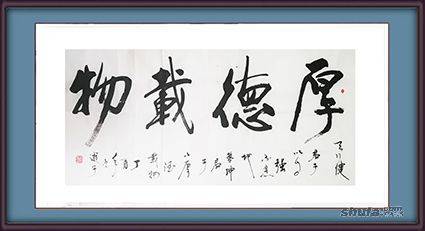 厚德載物
天行健
君子
以自
強
不息
地
勢坤
君
子
以厚
德
載物